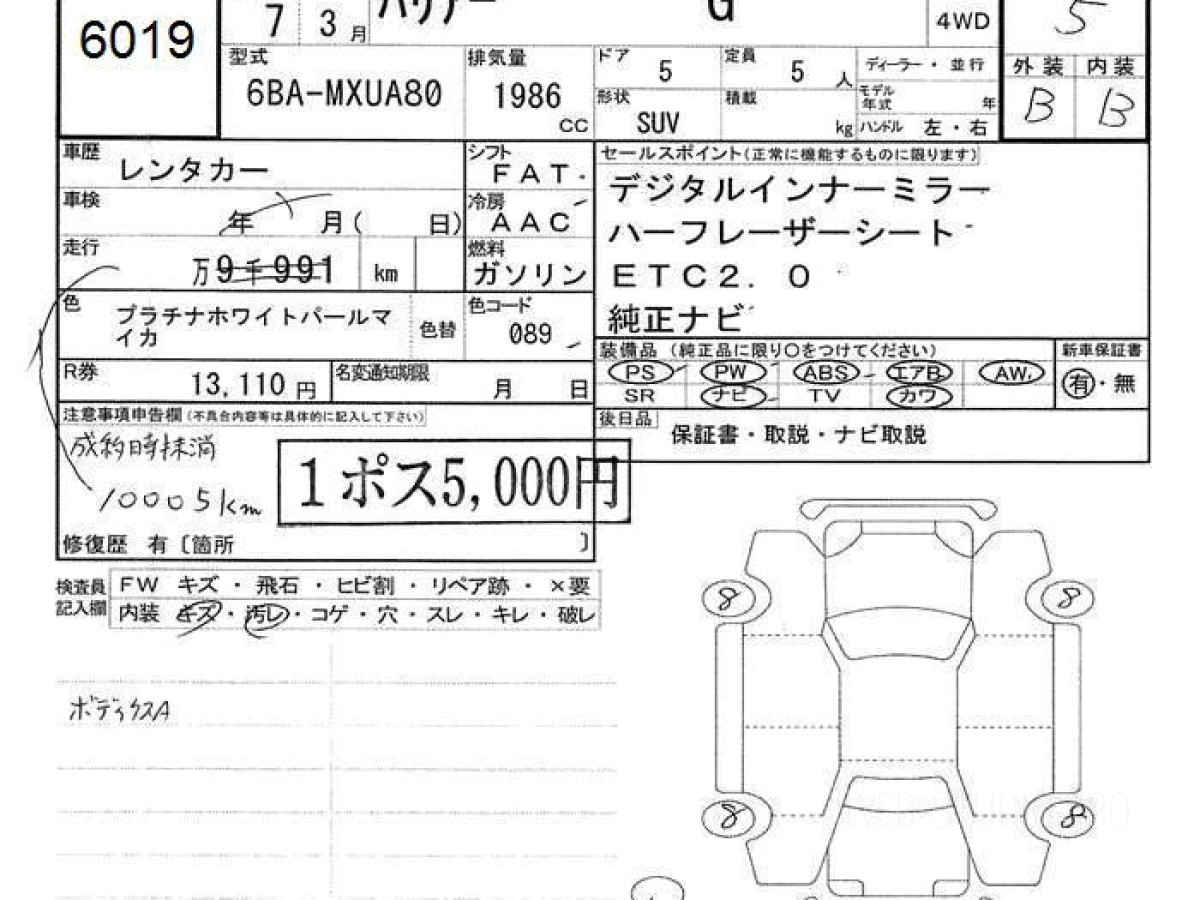 6019
7 3 月 ハリアー G 4WD 5
型式 6BA-MXUA80
排気量 1986 CC
ドア 5 定員 5 人
形状 SUV 積載 kg
ディーラー・並行
モデル年式 年
ハンドル 左・右
外装 内装
B B
車歴 レンタカー
車検 年 月( 日)
走行 万9千991 km
シフト FAT
冷房 AAC
燃料 ガソリン
色 プラチナホワイトパールマ
イカ
色替
色コード 089
R券 13,110 円
名変通知期限 月 日
セールスポイント(正常に機能するものに限ります)
デジタルインナーミラー
ハーフレーザーシート
ETC2.0
純正ナビ
装備品 (純正品に限り〇をつけてください) 新車保証書
PS PW ABS エアB AW 有・無
SR ナビ TV カワ
後日品 保証書・取説・ナビ取説
注意事項申告欄(不具合内容等は具体的に記入して下さい)
成約時抹消
10005km
1ポス5,000円
修復歴 有〔箇所 〕
検査員記入欄
FW キズ・飛石・ヒビ割・リペア跡・×要
内装 キズ・汚レ・コゲ・穴・スレ・キレ・破レ
ボディクスA
8 8
8 8